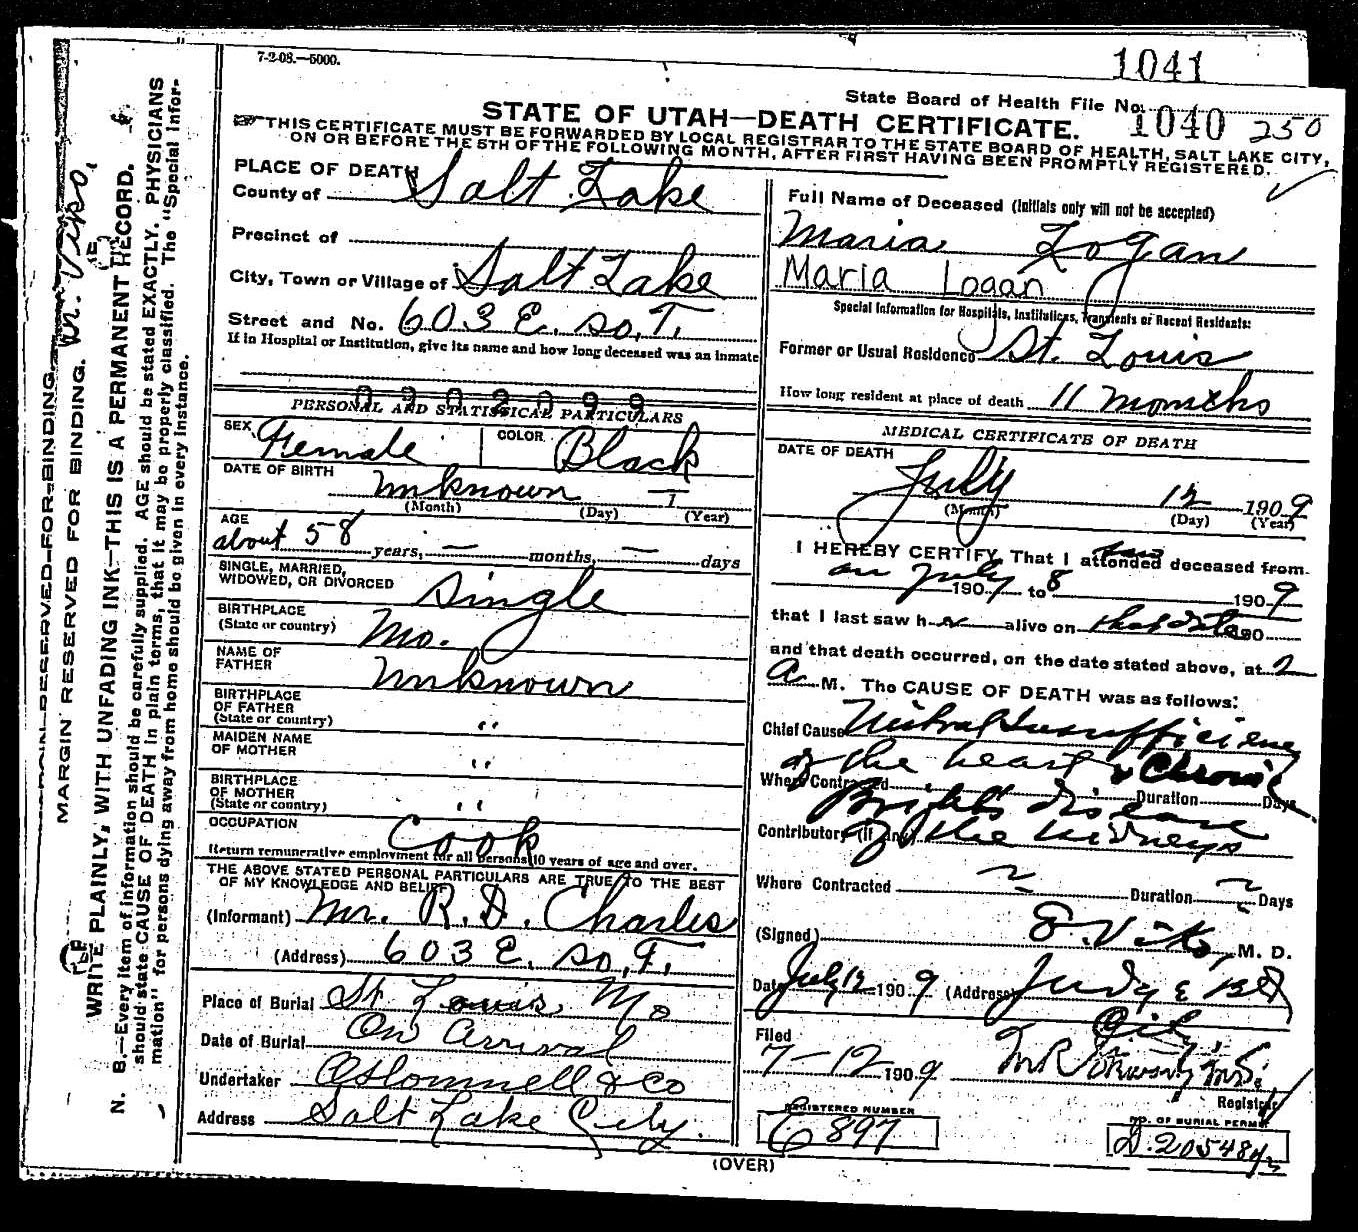 7-2-08.—5000.
1041
State Board of Health File No. 1040 250
STATE OF UTAH—DEATH CERTIFICATE.
THIS CERTIFICATE MUST BE FORWARDED BY LOCAL REGISTRAR TO THE STATE BOARD OF HEALTH, SALT LAKE CITY,
ON OR BEFORE THE 5TH OF THE FOLLOWING MONTH, AFTER FIRST HAVING BEEN PROMPTLY REGISTERED.
PLACE OF DEATH
County of Salt Lake
Precinct of
City, Town or Village of Salt Lake
Street and No. 603 E. So. T.
If in Hospital or Institution, give its name and how long deceased was an inmate
0902099
PERSONAL AND STATISTICAL PARTICULARS
SEX Female
COLOR Black
DATE OF BIRTH
Unknown
(Month) (Day) (Year)
AGE
about 58 years, — months, — days
SINGLE, MARRIED,
WIDOWED, OR DIVORCED Single
BIRTHPLACE
(State or country) Mo.
NAME OF
FATHER Unknown
BIRTHPLACE
OF FATHER
(State or country) "
MAIDEN NAME
OF MOTHER "
BIRTHPLACE
OF MOTHER
(State or country) "
OCCUPATION Cook
Return remunerative employment for all persons 10 years of age and over.
THE ABOVE STATED PERSONAL PARTICULARS ARE TRUE TO THE BEST
OF MY KNOWLEDGE AND BELIEF
(Informant) Mr. R. D. Charles
(Address) 603 E. So. T.
Place of Burial St. Louis, Mo
Date of Burial On Arrival
Undertaker & Co
Address Salt Lake City.
Full Name of Deceased (Initials only will not be accepted)
Maria Logan
Maria Logan
Special Information for Hospitals, Institutions, Transients or Recent Residents:
Former or Usual Residence St. Louis
How long resident at place of death 11 months
MEDICAL CERTIFICATE OF DEATH
DATE OF DEATH
July 12 1909
(Month) (Day) (Year)
I HEREBY CERTIFY, That I attended saw deceased from
on July 190 to 8 1909
that I last saw h er alive on that date 190
and that death occurred, on the date stated above, at 2
A M. The CAUSE OF DEATH was as follows:
Chief Cause Mitral Insufficiency
of the heart & Chronic
Where Contracted Duration Days
Bright's disease
Contributory (if any) of the kidneys
Where Contracted Duration Days
(Signed) M. D.
Date July 12 1909 (Address) Judge Bld
City
Filed
7-12 1909
Registrar
REGISTERED NUMBER
897
NO. OF BURIAL PERMIT
(OVER)
MARGIN RESERVED FOR BINDING.
MARGIN RESERVED FOR BINDING.
WRITE PLAINLY, WITH UNFADING INK—THIS IS A PERMANENT RECORD.
N. B.—Every item of information should be carefully supplied. AGE should be stated EXACTLY. PHYSICIANS
should state CAUSE OF DEATH in plain terms, that it may be properly classified. The "Special Infor-
mation" for persons dying away from home should be given in every instance.